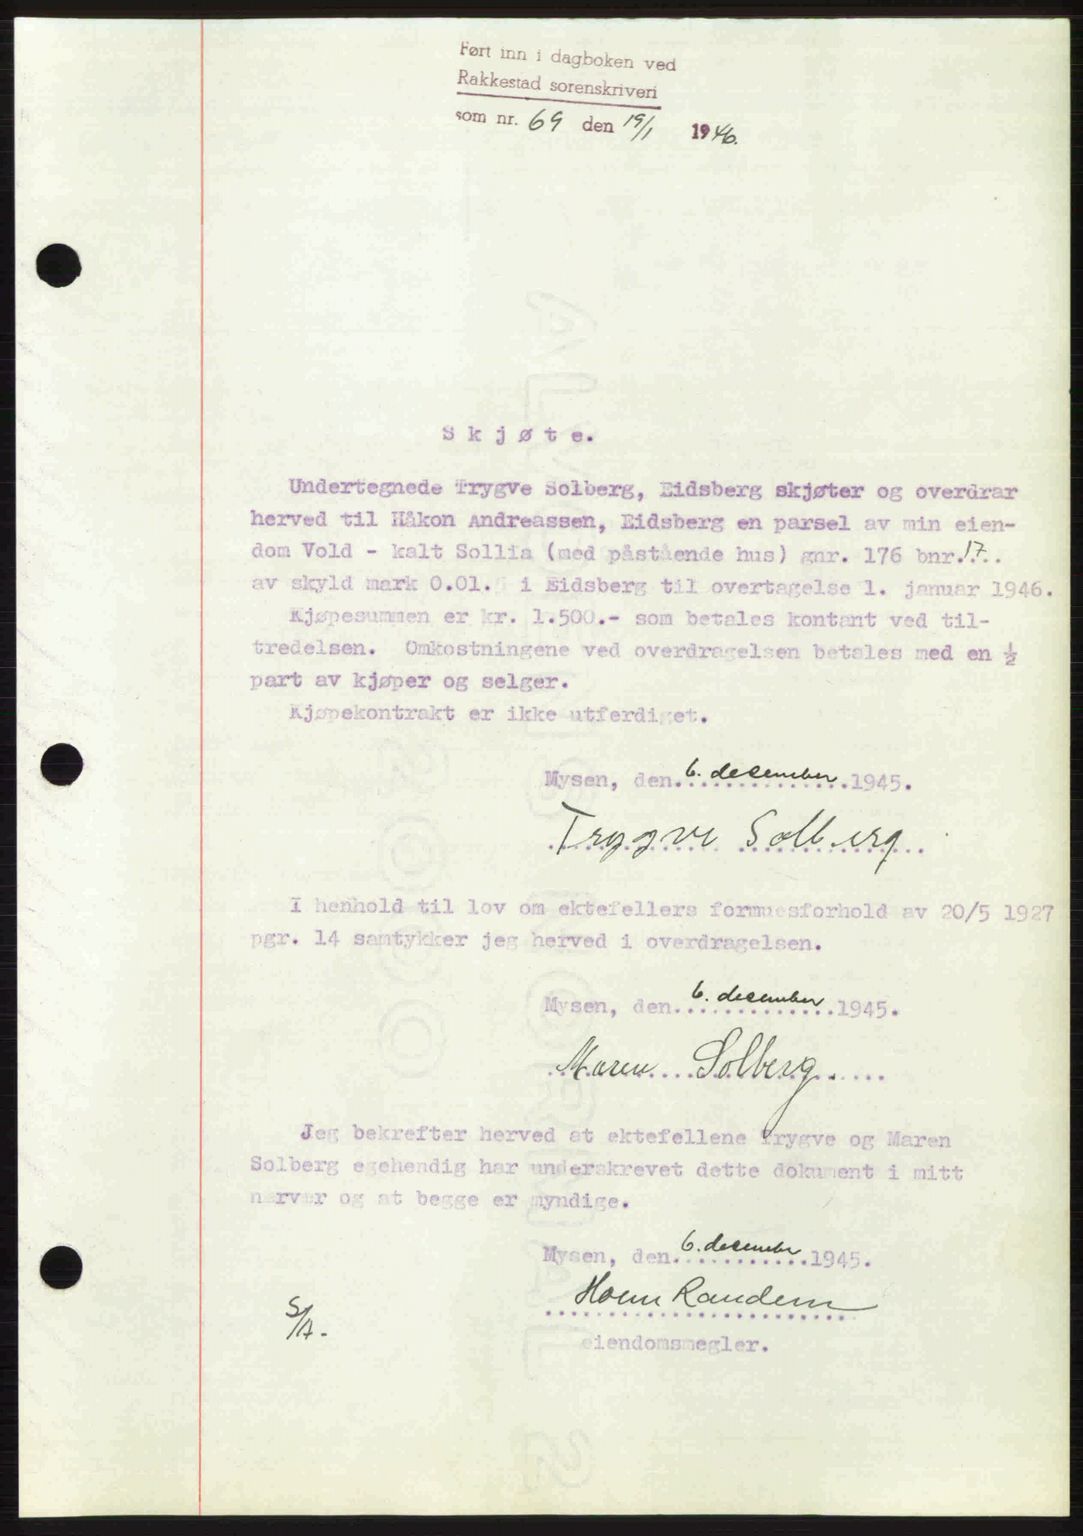 Ført inn i dagboken ved
Rakkestad sorenskriveri
som nr. 69 den 19/1 1946.
Skjøte.
Undertegnede Trygve Solberg, Eidsberg skjøter og overdrar
herved til Håkon Andreassen, Eidsberg en parsel av min eien-
dom Vold - kalt Sollia (med påstående hus) gnr. 176 bnr. 17
av skyld mark 0.01. i Eidsberg til overtagelse 1. januar 1946.
Kjøpesummen er kr. 1.500.- som betales kontant ved til-
tredelsen. Omkostningene ved overdragelsen betales med en ½
part av kjøper og selger.
Kjøpekontrakt er ikke utferdiget.
Mysen, den 6. december 1945.
Trygve Solberg
I henhold til lov om ektefellers formuesforhold av 20/5 1927
pgr. 14 samtykker jeg herved i overdragelsen.
Mysen, den 6. december 1945.
Maren Solberg.
Jeg bekrefter herved at ektefellene Trygve og Maren
Solberg egehendig har underskrevet dette dokument i mitt
nærvær og at begge er myndige.
Mysen, den 6. december 1945.
Randem
S/A.
eiendomsmegler.